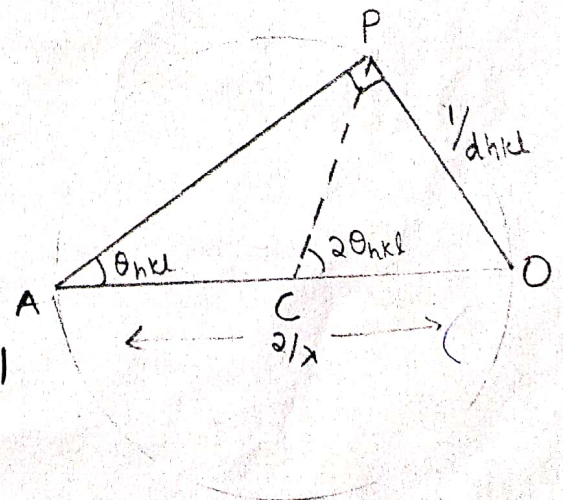 P
1/dhkl
θhkl
2θhkl
A
C
O
2/λ